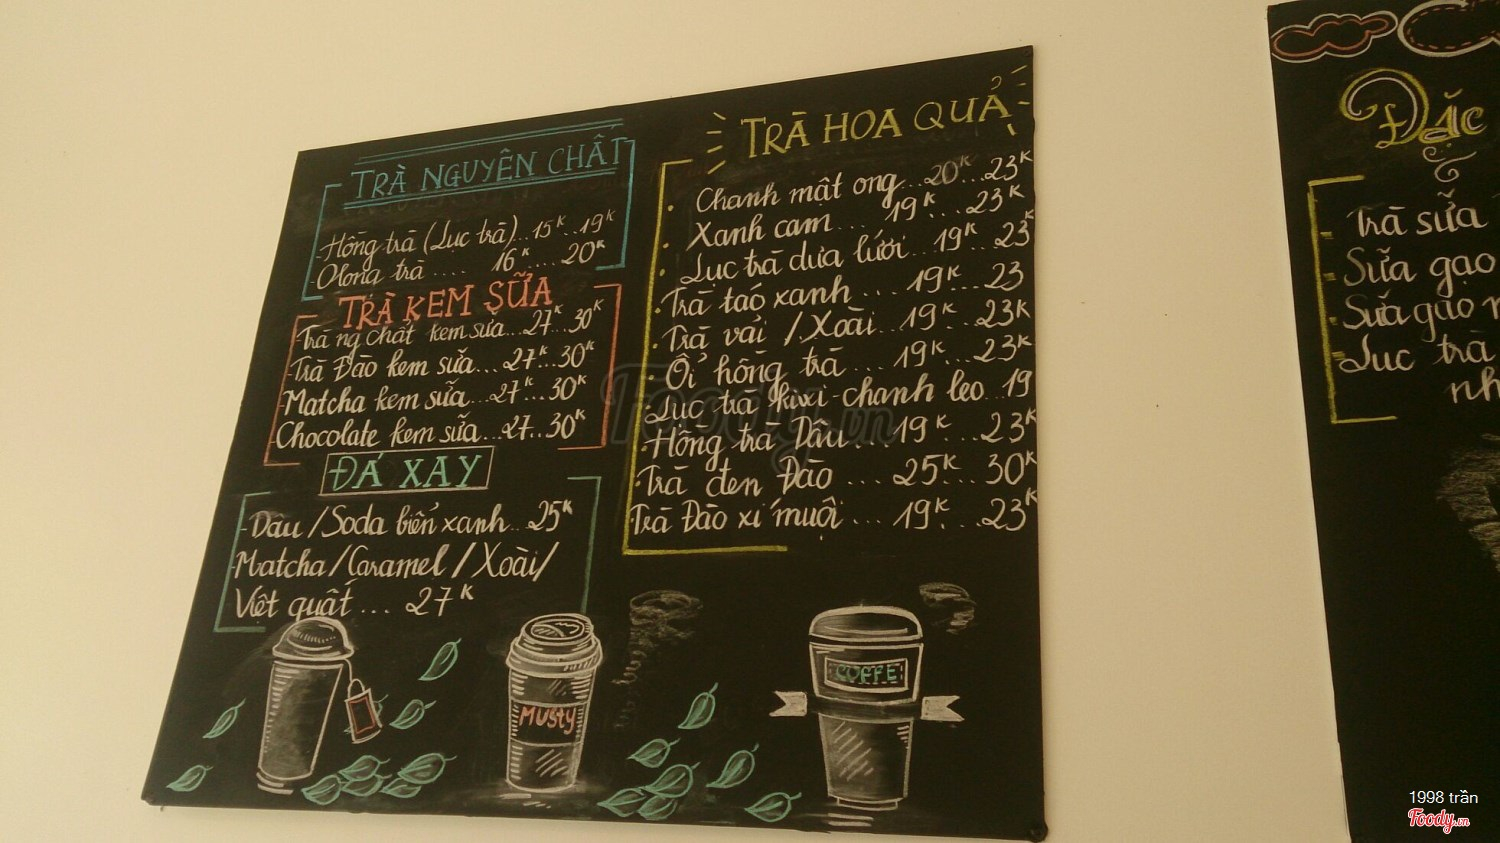 TRÀ NGUYÊN CHẤT
-Hồng trà (Lục trà)...15K...19K
-Olong trà .... 16K.....20K
TRÀ KEM SỮA
-Trà ng chất kem sữa...27K...30K
-Trà Đào kem sữa...27K...30K
-Matcha kem sữa...27K...30K
-Chocolate kem sữa...27...30K
ĐÁ XAY
-Dâu/Soda biển xanh...25K
-Matcha/Caramel/Xoài/
Việt quất... 27K
TRÀ HOA QUẢ
. Chanh mật ong...20K...23K
. Xanh cam... 19K...23K
. Lục trà dưa lưới. 19K...23
. Trà táo xanh ... 19K...23
. Trà vải / Xoài...19K...23K
. Ổi hồng trà ... 19K...23K
. Lục trà kiwi-chanh leo..19
. Hồng trà Dâu...19K...23K
. Trà đen Đào ... 25K...30K
. Trà Đào xí muội ... 19K...23K
MUSTY
COFFE
Đặc
Trà sữa
Sữa gạo
Sữa gạo
Lục trà
nh
Foody.vn
1998 trần
Foody.vn